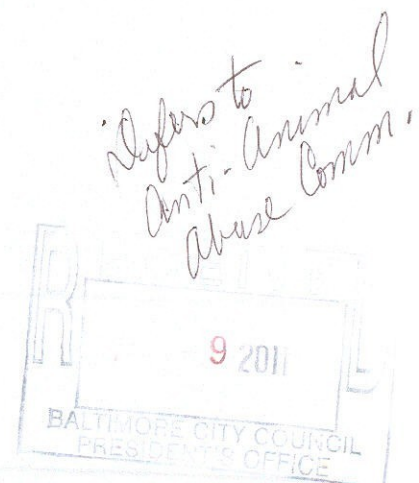 Defers to
Anti-Animal
Abuse Comm.
R D
9 2011
BALTIMORE CITY COUNCIL
PRESIDENT'S OFFICE